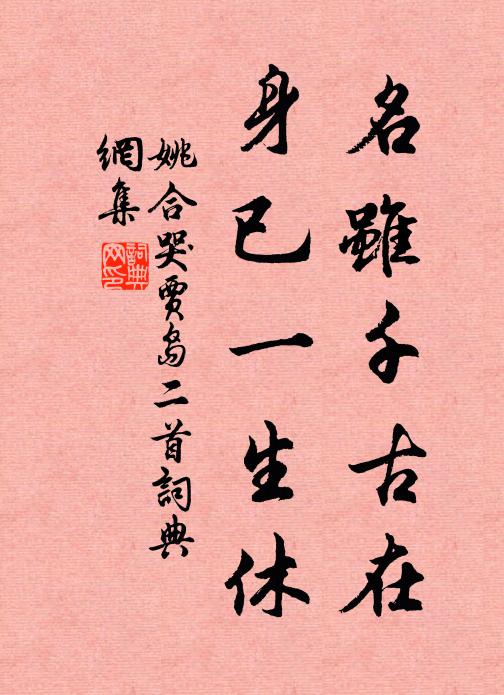 名雖千古在
身已一生休
姚合哭賈島二首詞典
網集
詞典網印